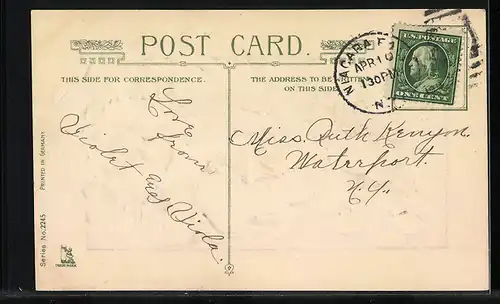 POST CARD.
THIS SIDE FOR CORRESPONDENCE.
THE ADDRESS TO BE WRITTEN
ON THIS SIDE
NIAGARA F
APR 10
130PM
N.
U.S. POSTAGE
ONE CENT
Love
from
Violet and Viola.
Miss. Ruth Kenyon,
Waterport,
N.Y.
Series No. 2245
PRINTED IN GERMANY.